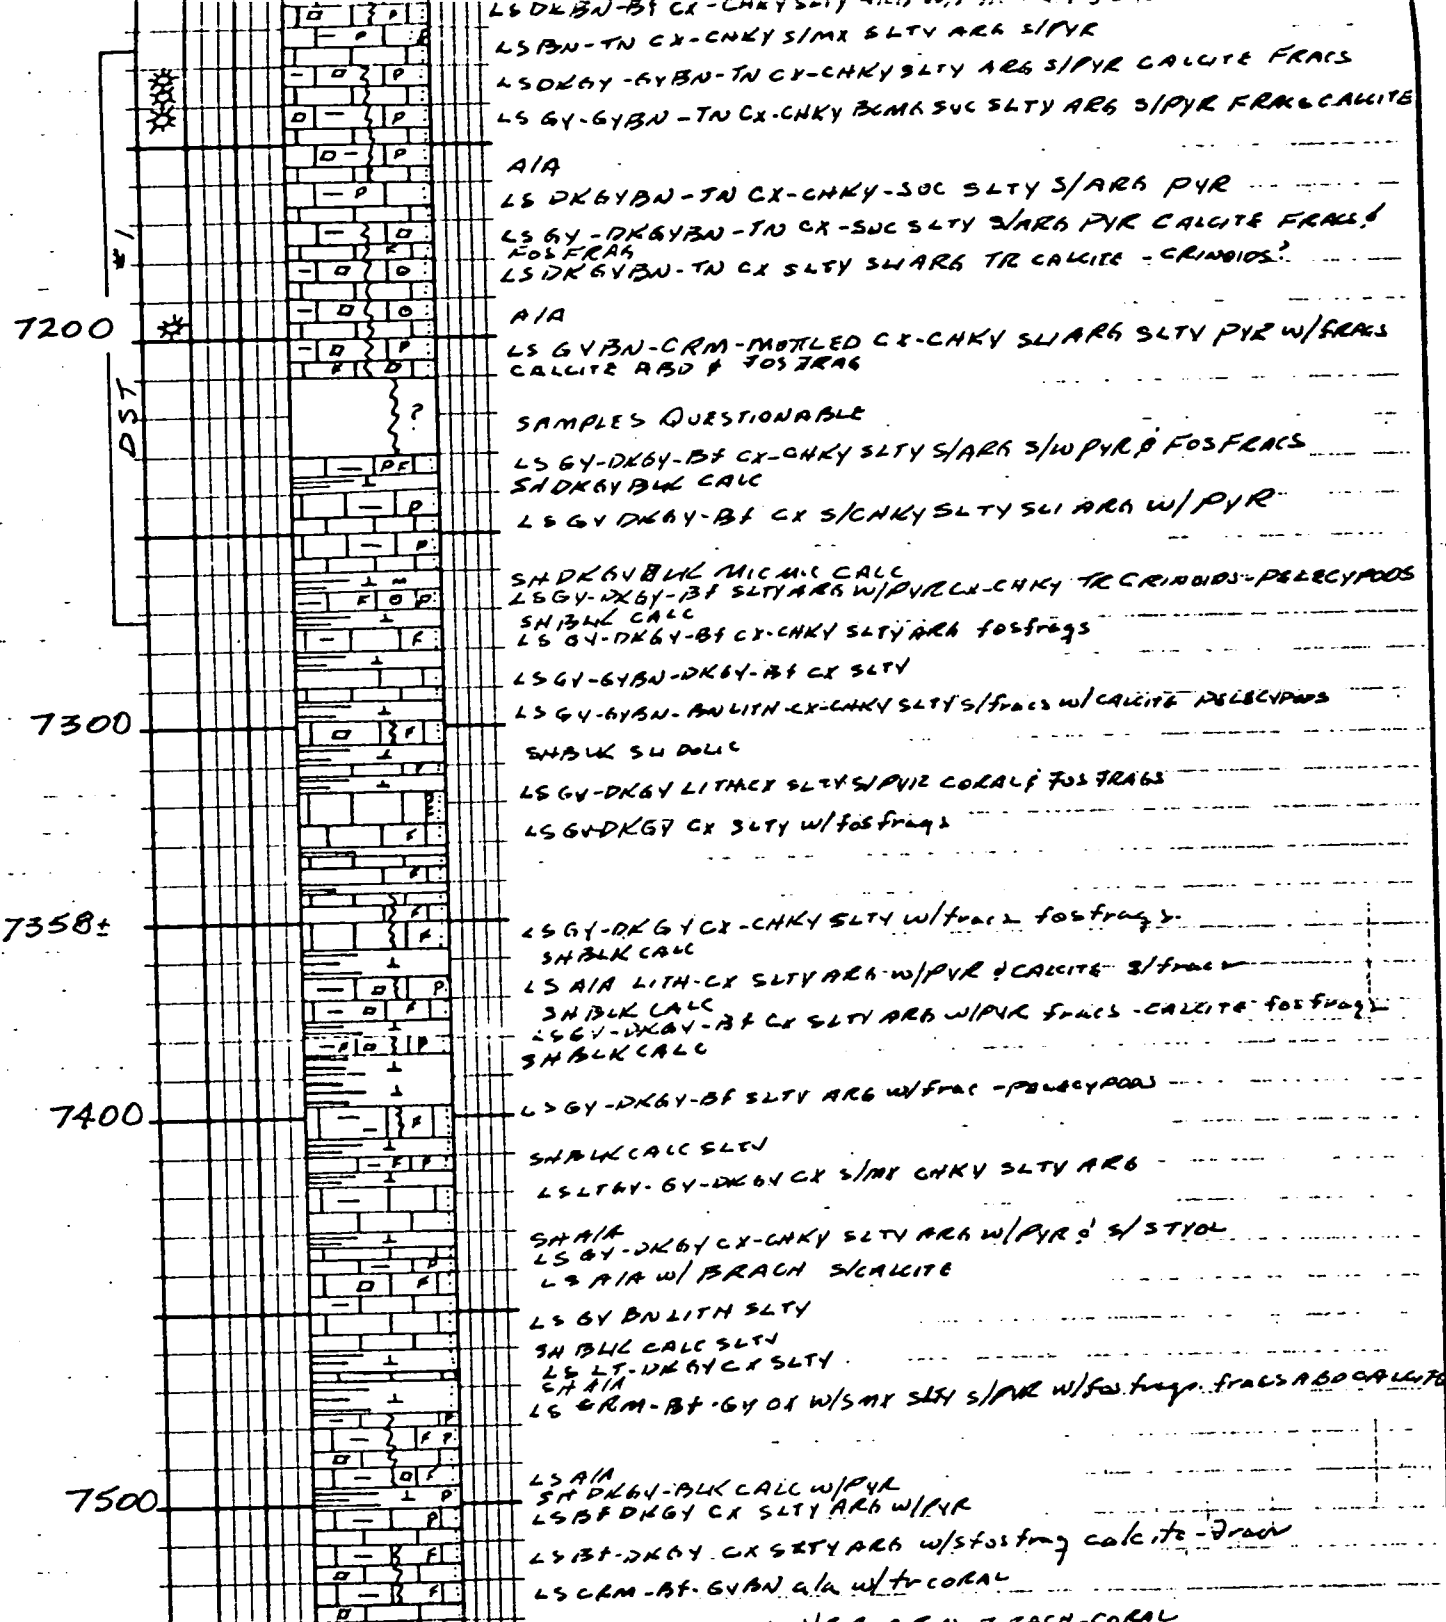 LS DKBN-Bf CX-CHKY SLTY ARG
LS BN-TN CX-CHKY S/MX SLTY ARG S/PYR
LS DKGY-GYBN-TN CX-CHKY SLTY ARG S/PYR CALCITE FRACS
LS GY-GYBN-TN CX-CHKY BCMG SUC SLTY ARG S/PYR FRACS CALCITE
A/A
LS DKGYBN-TN CX-CHKY-SUC SLTY S/ARG PYR
#1
LS GY-DKGYBN-TN CX-SUC SLTY S/ARG PYR CALCITE FRACS &
FOS FRAG
LS DKGYBN-TN CX SLTY SLI ARG TR CALCITE - CRINOIDS?
A/A
7200
LS GYBN-CRM-MOTTLED CX-CHKY SLI ARG SLTY PYR W/FRACS
CALCITE ABD & FOS FRAG
DST
?
SAMPLES QUESTIONABLE
LS GY-DKGY-Bf CX-CHKY SLTY S/ARG S/W PYR & FOS FRACS
SH DKGY BLK CALC
LS GY DKGY-Bf CX S/CHKY SLTY SLI ARG W/PYR
SH DKGY BLK MIC MIC CALC
LS GY-DKGY-Bf SLTY ARG W/PYR CX-CHKY TR CRINOIDS-PELECYPODS
SH BLK CALC
LS GY-DKGY-Bf CX-CHKY SLTY ARG fosfrags
LS GY-GYBN-DKGY-Bf CX SLTY
LS GY-GYBN-BN LITH-CX-CHKY SLTY S/fracs w/CALCITE PELECYPODS
7300
SH BLK SLI DOLIC
LS GY-DKGY LITH CX SLTY S/PYR CORAL & FOS FRAGS
LS GY DKGY CX SLTY w/fosfrags
7358±
LS GY-DKGY CX-CHKY SLTY w/fracs fosfrags
SH BLK CALC
LS A/A LITH-CX SLTY ARG W/PYR & CALCITE S/fracs
SH BLK CALC
LS GY-DKGY-Bf CX SLTY ARG W/PYR fracs - CALCITE fosfrags
SH BLK CALC
LS GY-DKGY-Bf SLTY ARG w/frac - PELECYPODS
7400
SH BLK CALC SLTY
LS LTGY-GY-DKGY CX S/MX CHKY SLTY ARG
SH A/A
LS GY-DKGY CX-CHKY SLTY ARG W/PYR & S/STYOL
LS A/A W/ BRACH S/CALCITE
LS GY BN LITH SLTY
SH BLK CALC SLTY
LS LT-DKGY CX SLTY
SH A/A
LS CRM-Bf-GY CX W/SMX SLTY S/PYR W/fosfrags fracs ABD CALCITE
LS A/A
SH DKGY-BLK CALC W/PYR
7500
LS Bf DKGY CX SLTY ARG W/PYR
LS Bf-DKGY CX SLTY ARG w/s fosfrag calcite-
LS CRM-Bf-GYBN a/a w/tr CORAL
CORAL